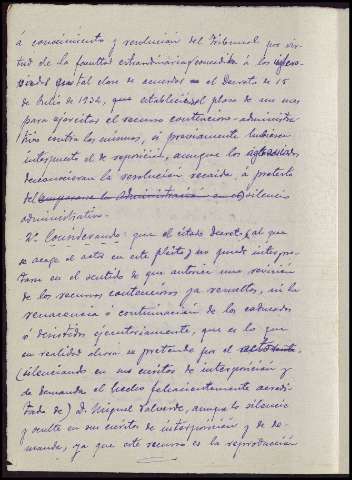 á conocimiento y resolución del Tribunal por vir-
tud de la facultad extraordinaria y concedida á los
con tal clase de acuerdos en el Decreto de 15
de Julio de 1934, que establecía el plazo de un mes
para ejercitar el recurso contencioso-administra-
tivo contra los mismos, si previamente hubiesen
interpuesto el de reposición, aunque los
desconocieran la resolución recaída, á pretexto
del silencio
administrativo.
2º Considerando: que el citado decreto, al que
se acoge el actor en este pleito, no puede interpre-
tarse en el sentido de que autorice una revisión
de los recursos contenciosos ya resueltos, ni la
renacencia ó continuación de los caducados
ó desistidos ejecutoriamente, que es lo que
en realidad ahora se pretende por el
(silenciando en sus escritos de interposición y
de demanda el hecho felicientemente acredi-
tado de) D. Miguel Valverde, aunque lo silencie
y oculte en sus escritos de interposición y de de-
manda, ya que este recurso es la reproducción